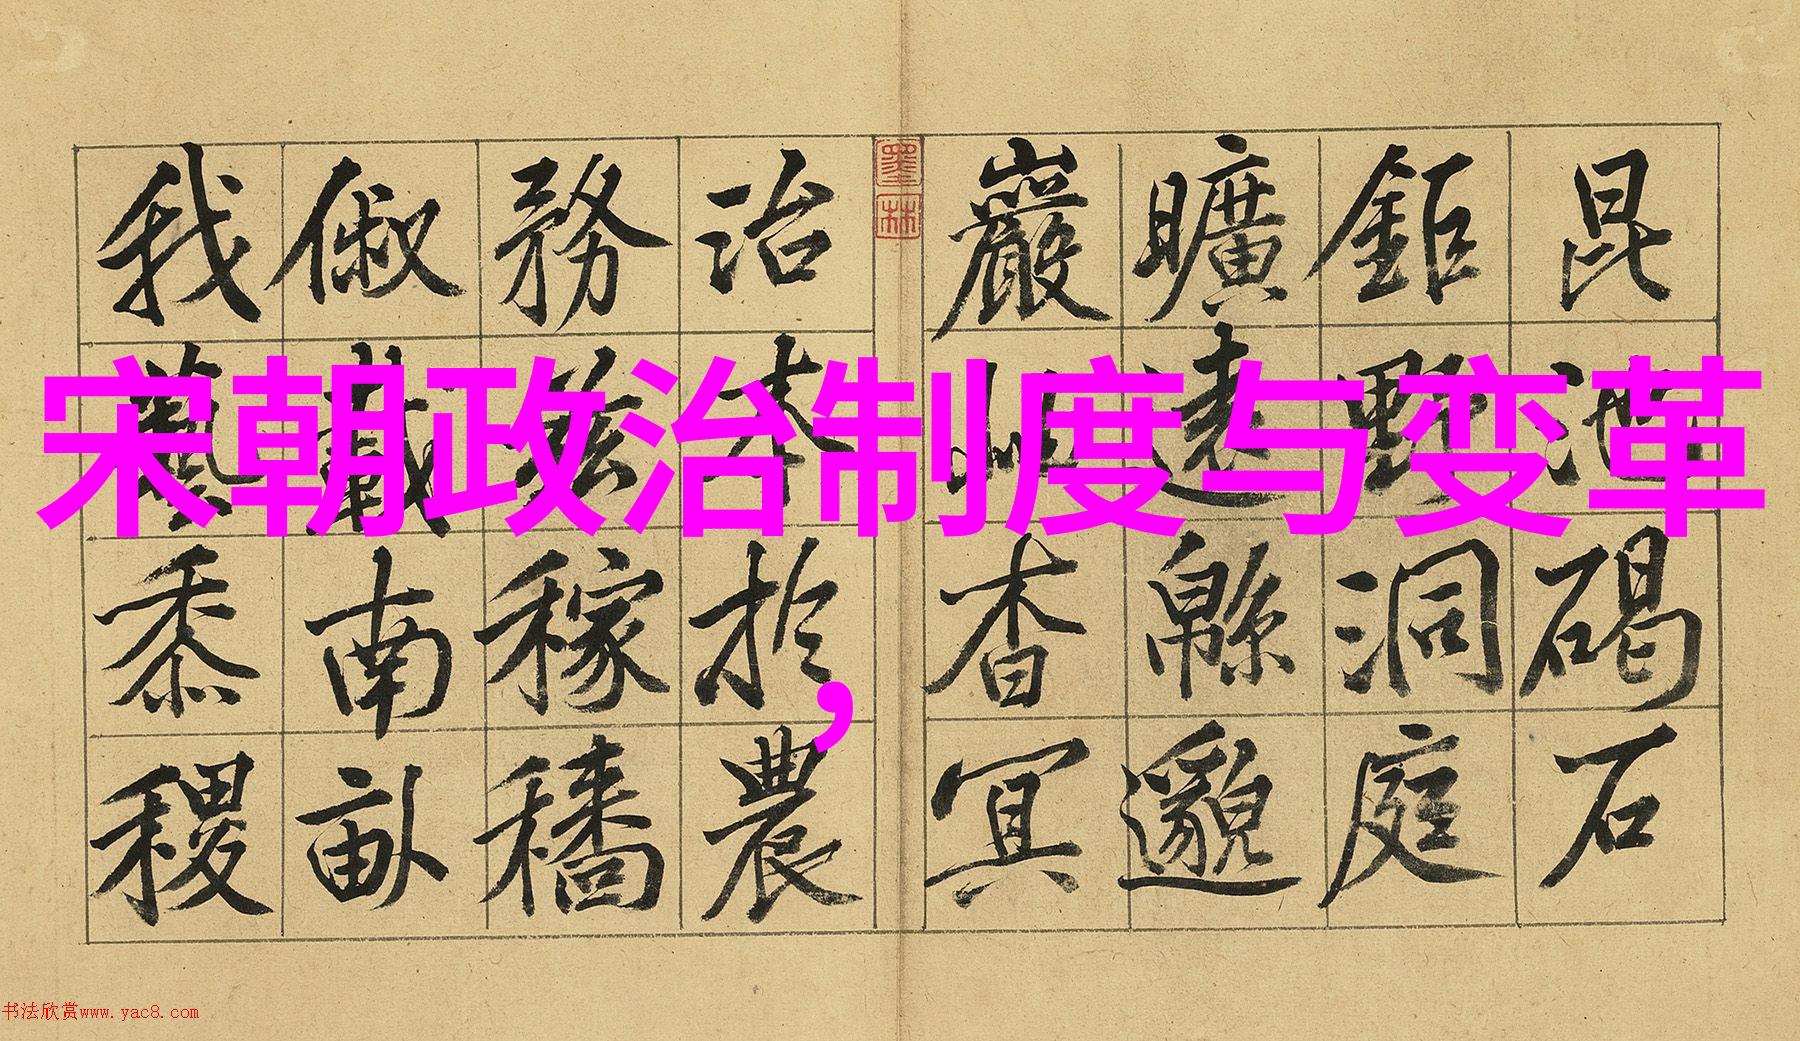 宋朝政治制度与变革
，
昆池碣石
鉅野洞庭
曠遠緜邈
巖岫杳冥
墨林
治本於農
務茲稼穡
俶載南畝
我藝黍稷
书法欣赏www.yac8.com